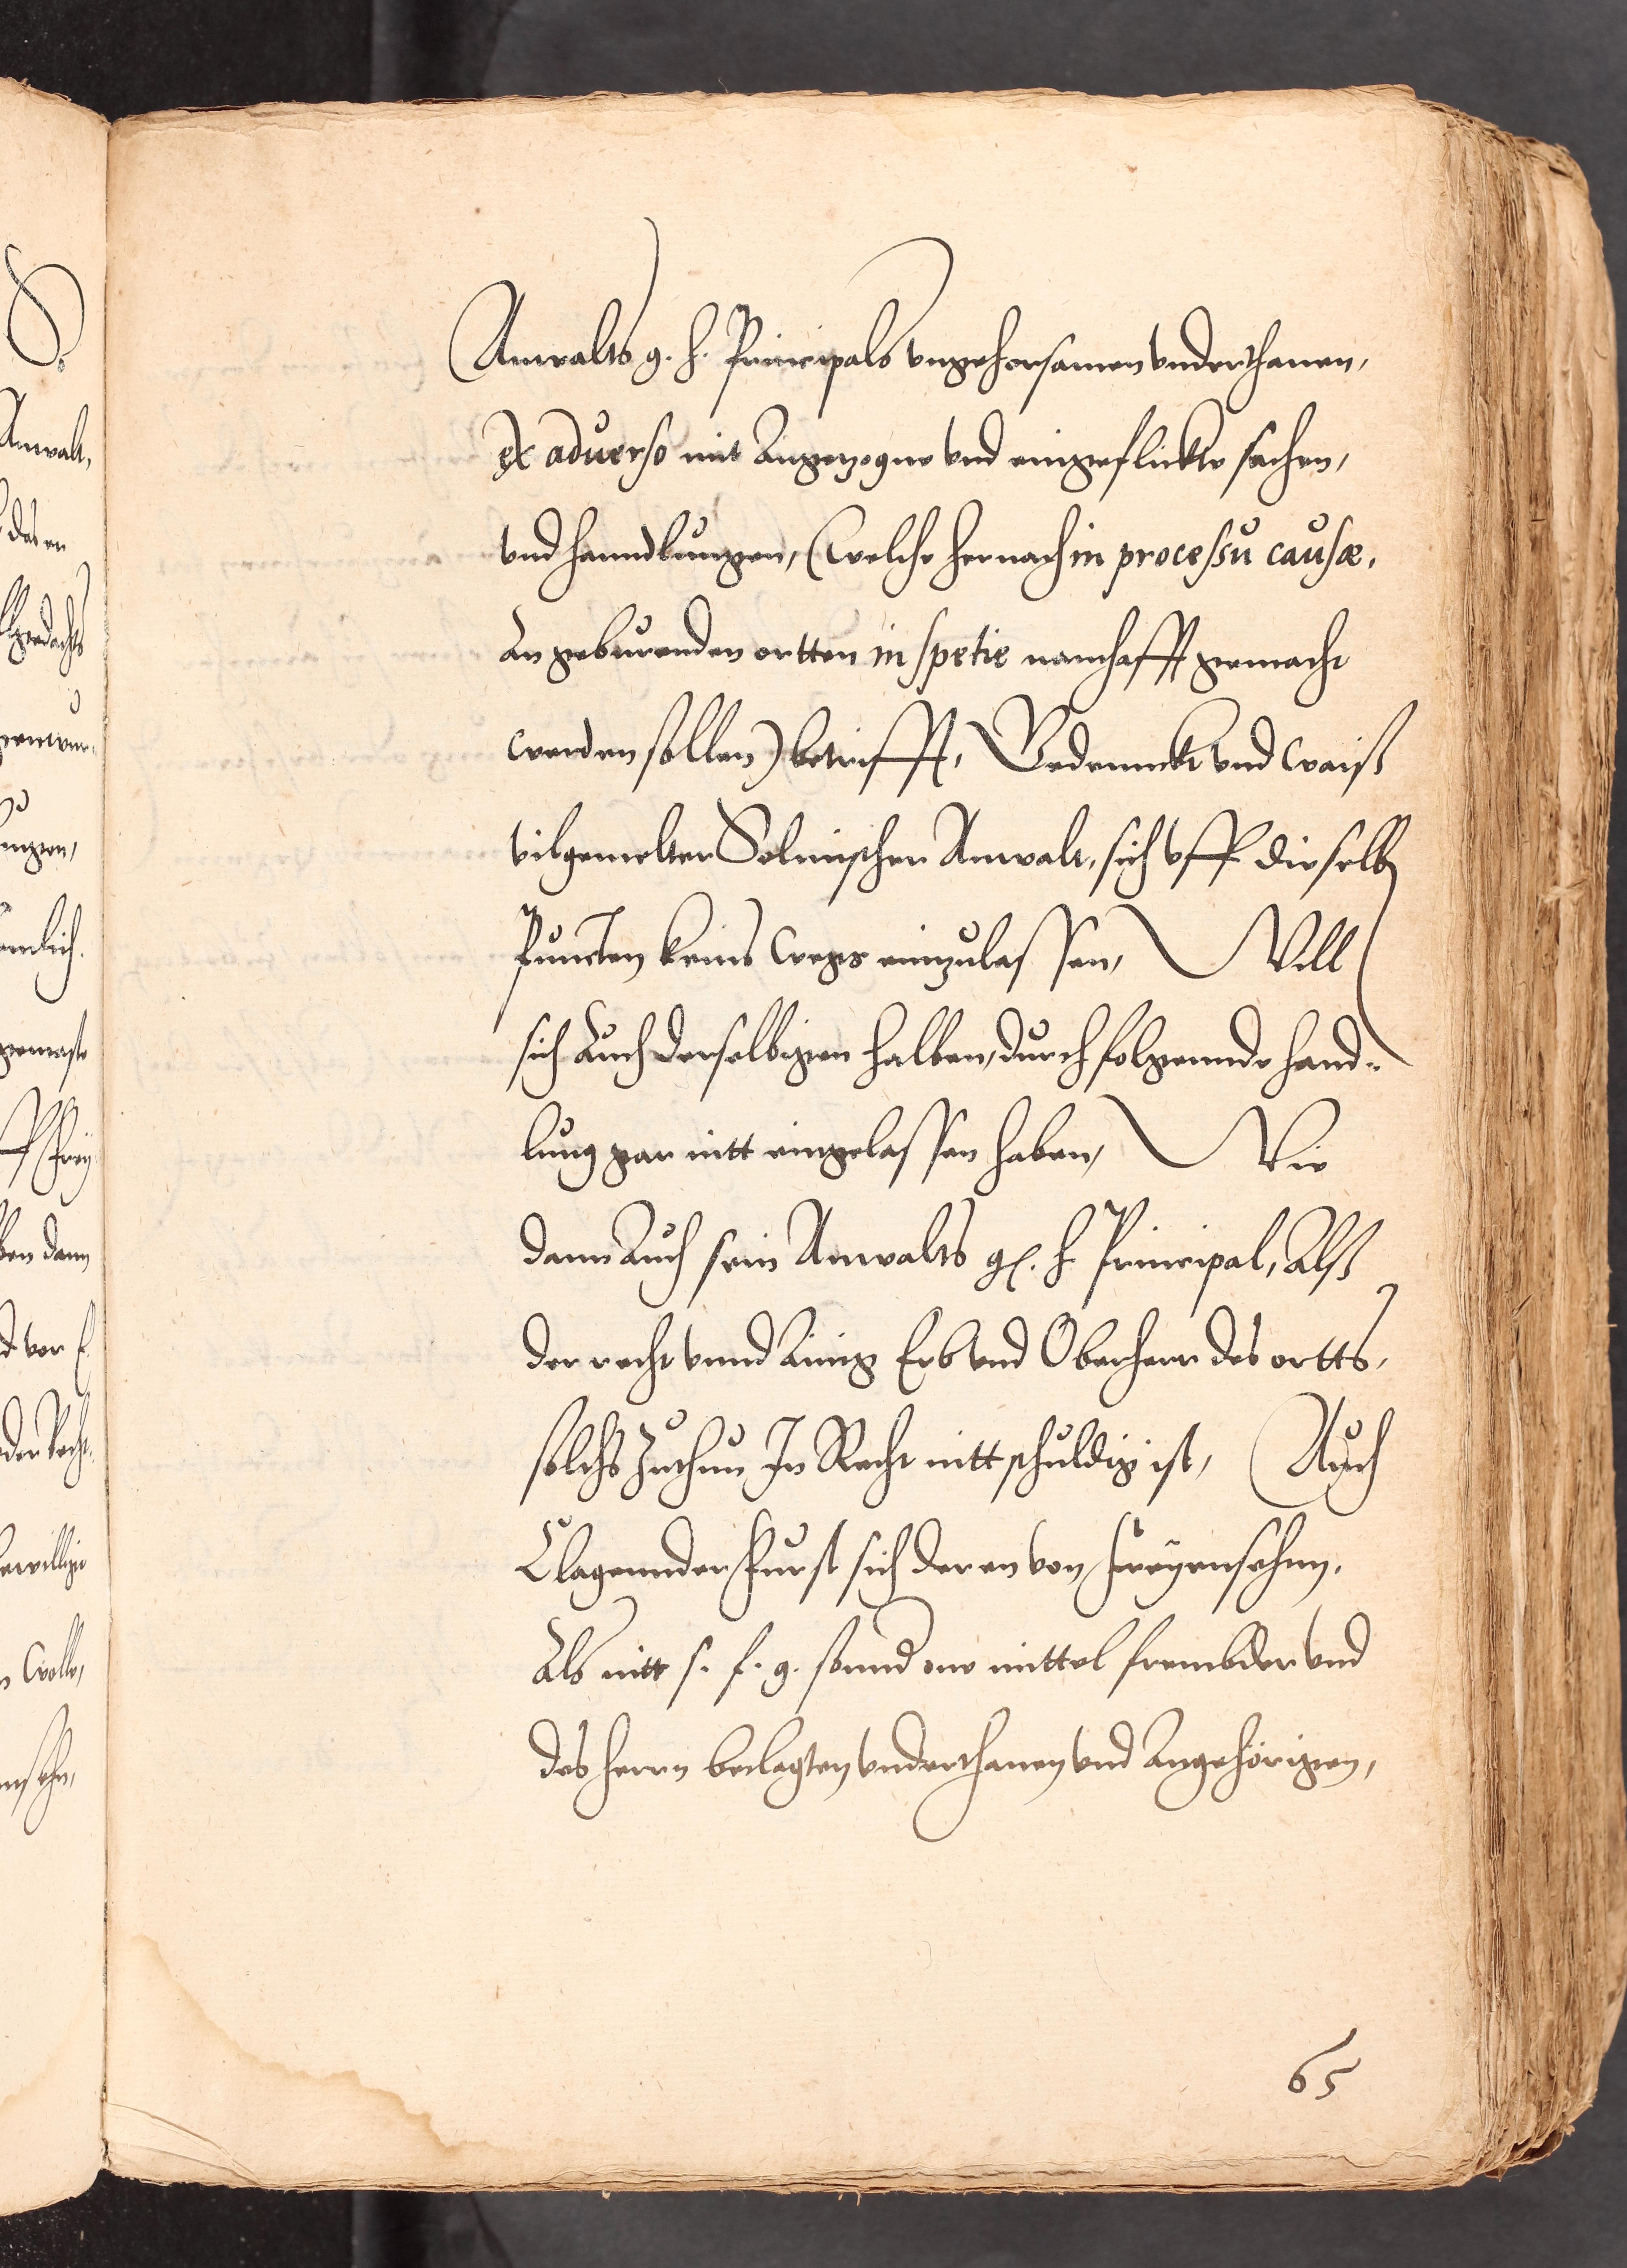 Anwalts g. h. Principals vngehorsamen vnderthanen,
ex aduerso mit Angezogne vnd eingeflickte sachen,
vnd hanndlungen, (welche hernach in processu causæ.
An geburenden ortten in spetie namhafft gemacht
werden sollen) betrifft, Gedennckt vnd waist
vilgemelter Solmischer Anwalt, sich vff dieselb
puncten keins wegs einzulassen, Will
sich Auch derselbigen halben, durch folgennde hand-
lung gar nitt eingelassen haben, Wie
dann Auch sein Anwalts g. h. Principal, Alß
der recht vnnd Ainig Erb vnd Oberherr des ortts,
solchs Zuthun In Recht nitt schuldig ist, Auch
Clagennder Furst sich deren von Freyensehn,
Als nitt s. f. g. sonnd one mittel frembder vnd
des herrn beclagten vnderthanen vnd Angehörigen,
65
Anwalt,
das er
gemaste
Frey
ben dann
vor E.
der Recht
bewillige
wolle,